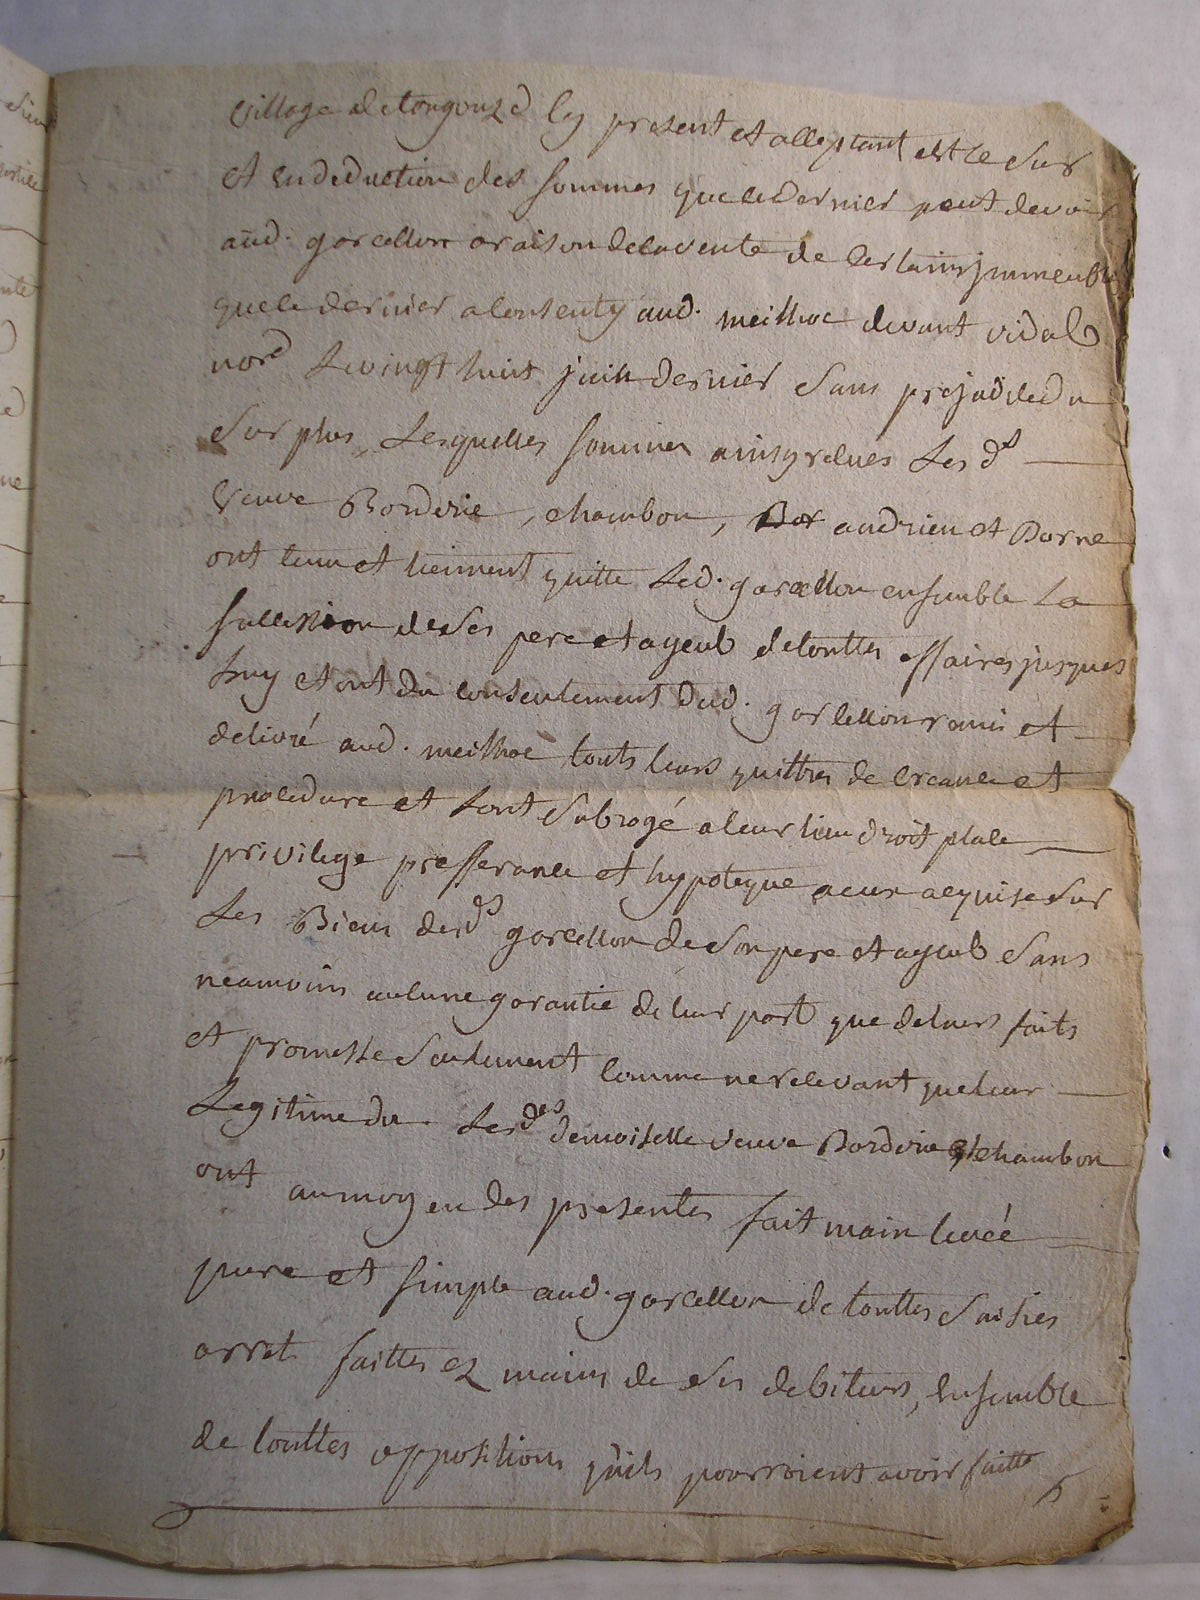 village de longouze cy present et acceptant est ce sur
et en deduction des sommes que ce dernier peut devoir
aud. garcellon a raison de la vente de certains jmmeubles
que ce dernier a consenty aud. meilhoc devant vidal
nore Le vingt huit juin dernier sans prejudice du
surplus, Lesquelles sommes ainsy reçues Les ds
veuve Borderie, chambon, andrieu et Borne
ont tenu et tiennent quitte Led. garcellon ensemble La
succession de ses pere et ayeul de touttes affaires jusques
huy et ont du consentement dud. garcellon remis et
delivré aud. meilhoc touts leurs quittres de creance et
procedure et Lont subrogé a leur lieu droit place
privilege prefferance et hypoteque a eux acquise sur
Les Biens des ds garcellon de son pere et ayeul sans
neamoins aucune garantie de leur part que de leurs faits
et promesse seulement comme ne relevant que leur
Legitime du. Les des demoiselle veuve Borderie et chambon
ont au moyen des presentes fait main levée
pure et simple aud. garcellon de touttes saisies
arret faittes ez mains de ses debiteurs, ensemble
de touttes oppositions quils pourroient avoir faitte